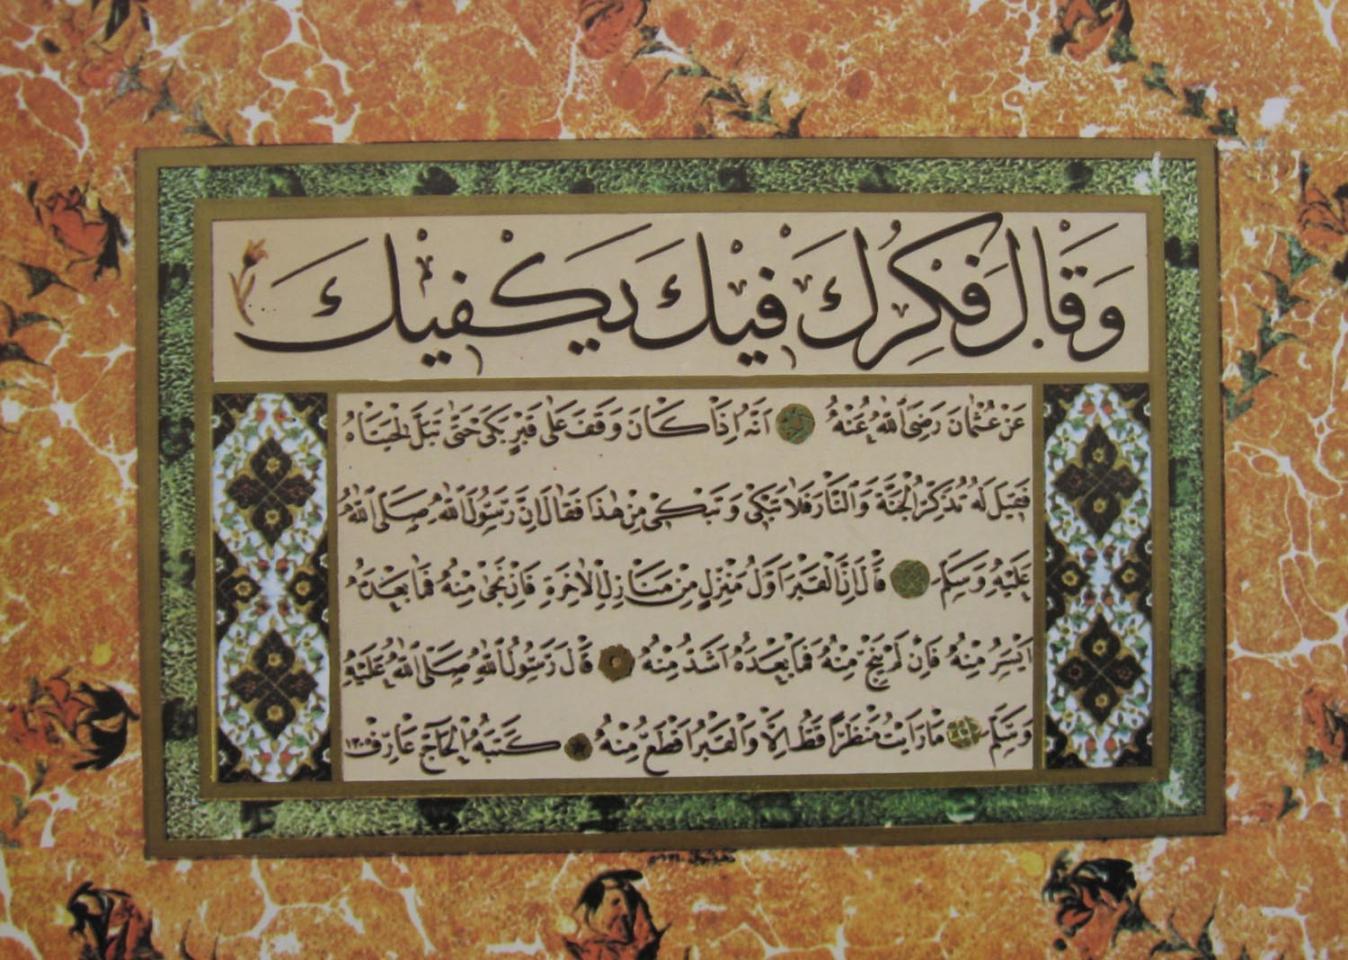 وَقَالَ فَكِّرْكَ فِيْكَ يَكْفِيْكَ
عَنْ عُثْمَانَ رَضِيَ اللهُ عَنْهُ اَنَّهُ اِذَا كَانَ وَقَفَ عَلٰى قَبْرٍ بَكٰى حَتّٰى تَبَلَّ لِحْيَتَاهُ
فَقِيْلَ لَهُ تُذَكِّرُ الْجَنَّةَ وَالنَّارَ فَلَا تَبْكٰى وَتَبْكٰى مِنْ هٰذَا فَقَالَ اِنَّ رَسُولَ اللهِ صَلَّى اللهُ
عَلَيْهِ وَسَلَّمَ قَالَ اِنَّ الْقَبْرَ اَوَّلُ مَنْزِلٍ مِنْ مَنَازِلِ الْاٰخِرَةِ فَاِنْ نَجٰى مِنْهُ فَمَا بَعْدَهُ
اَيْسَرُ مِنْهُ فَاِنْ لَمْ يَنْجُ مِنْهُ فَمَا بَعْدَهُ اَشَدُّ مِنْهُ قَالَ رَسُولُ اللهِ صَلَّى اللهُ عَلَيْهِ
وَسَلَّمَ مَا رَاَيْتُ مَنْظَرًا قَطُّ اِلَّا وَالْقَبْرُ اَفْظَعُ مِنْهُ كَتَبَهُ الْحَاجّ عَارِف